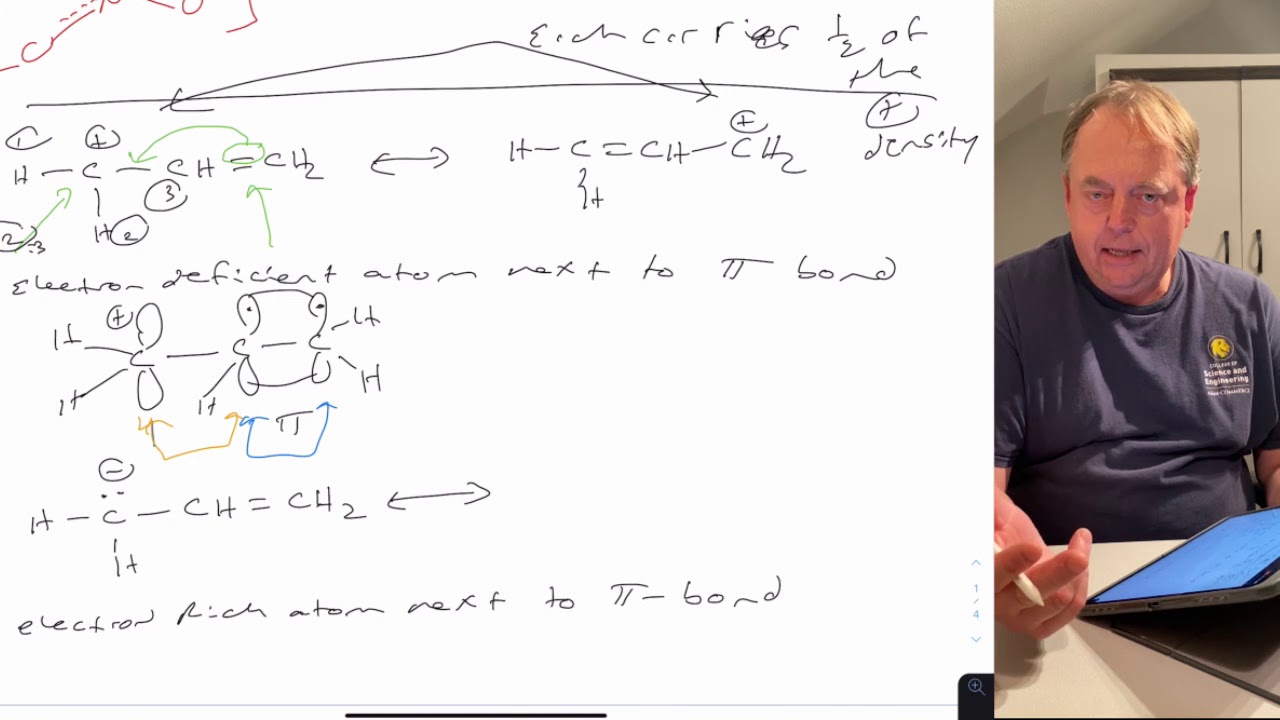 Each carries 1/2 of
the
⊕
density
① ⊕
H — C — CH = CH2 ⟷ H — C = CH — CH2
⊕
③
H ② H
2 : 3
Electron deficient atom next to π bond
⊕
H C — C — C H
H H H
π
⊖
H — C̈ — CH = CH2 ⟷
H
electron Rich atom next to π - bond
COLLEGE OF
Science and
Engineering
1
/
4